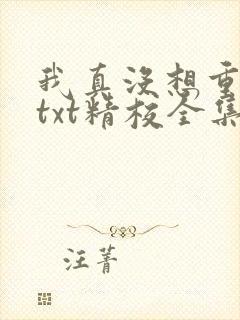 我真没想重
txt精校全集
汪菁